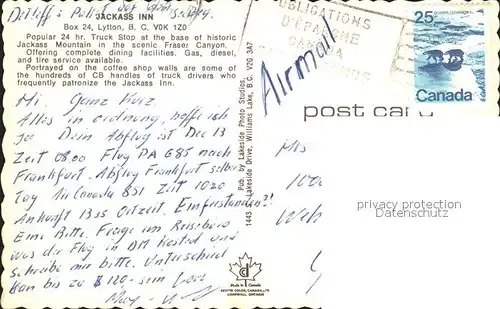 JACKASS INN
Box 24, Lytton, B. C. V0K 1Z0
Popular 24 hr. Truck Stop at the base of historic
Jackass Mountain in the scenic Fraser Canyon.
Offering complete dining facilities. Gas, diesel,
and tire service available.
Portrayed on the coffee shop walls are some of
the hundreds of CB handles of truck drivers who
frequently patronize the Jackass Inn.
Ganz Kurz
Alles in ordnung, hoffe ich
Dein Abflug ist Dec 13
Zeit 0800 Flug PA 685 nach
Frankfurt. Abflug Frankfurt selber
Tag Air Canada 851 Zeit 1020
Ankunft 1355 Ortzeit. Einferstanden?!
Eine Bitte. Frage im Reisebüro
was die Flug in DM kostet und
schreibe mir bitte. Unterschied
kan bis zu $120-sein
Pub. by Lakeside Photo Studios,
1443 Lakeside Drive, Williams Lake, B.C. V2G 3A7
Made in Canada
OBLIGATIONS
D'ÉPARGNE
Airmail
25
Canada
post card
privacy protection
Datenschutz